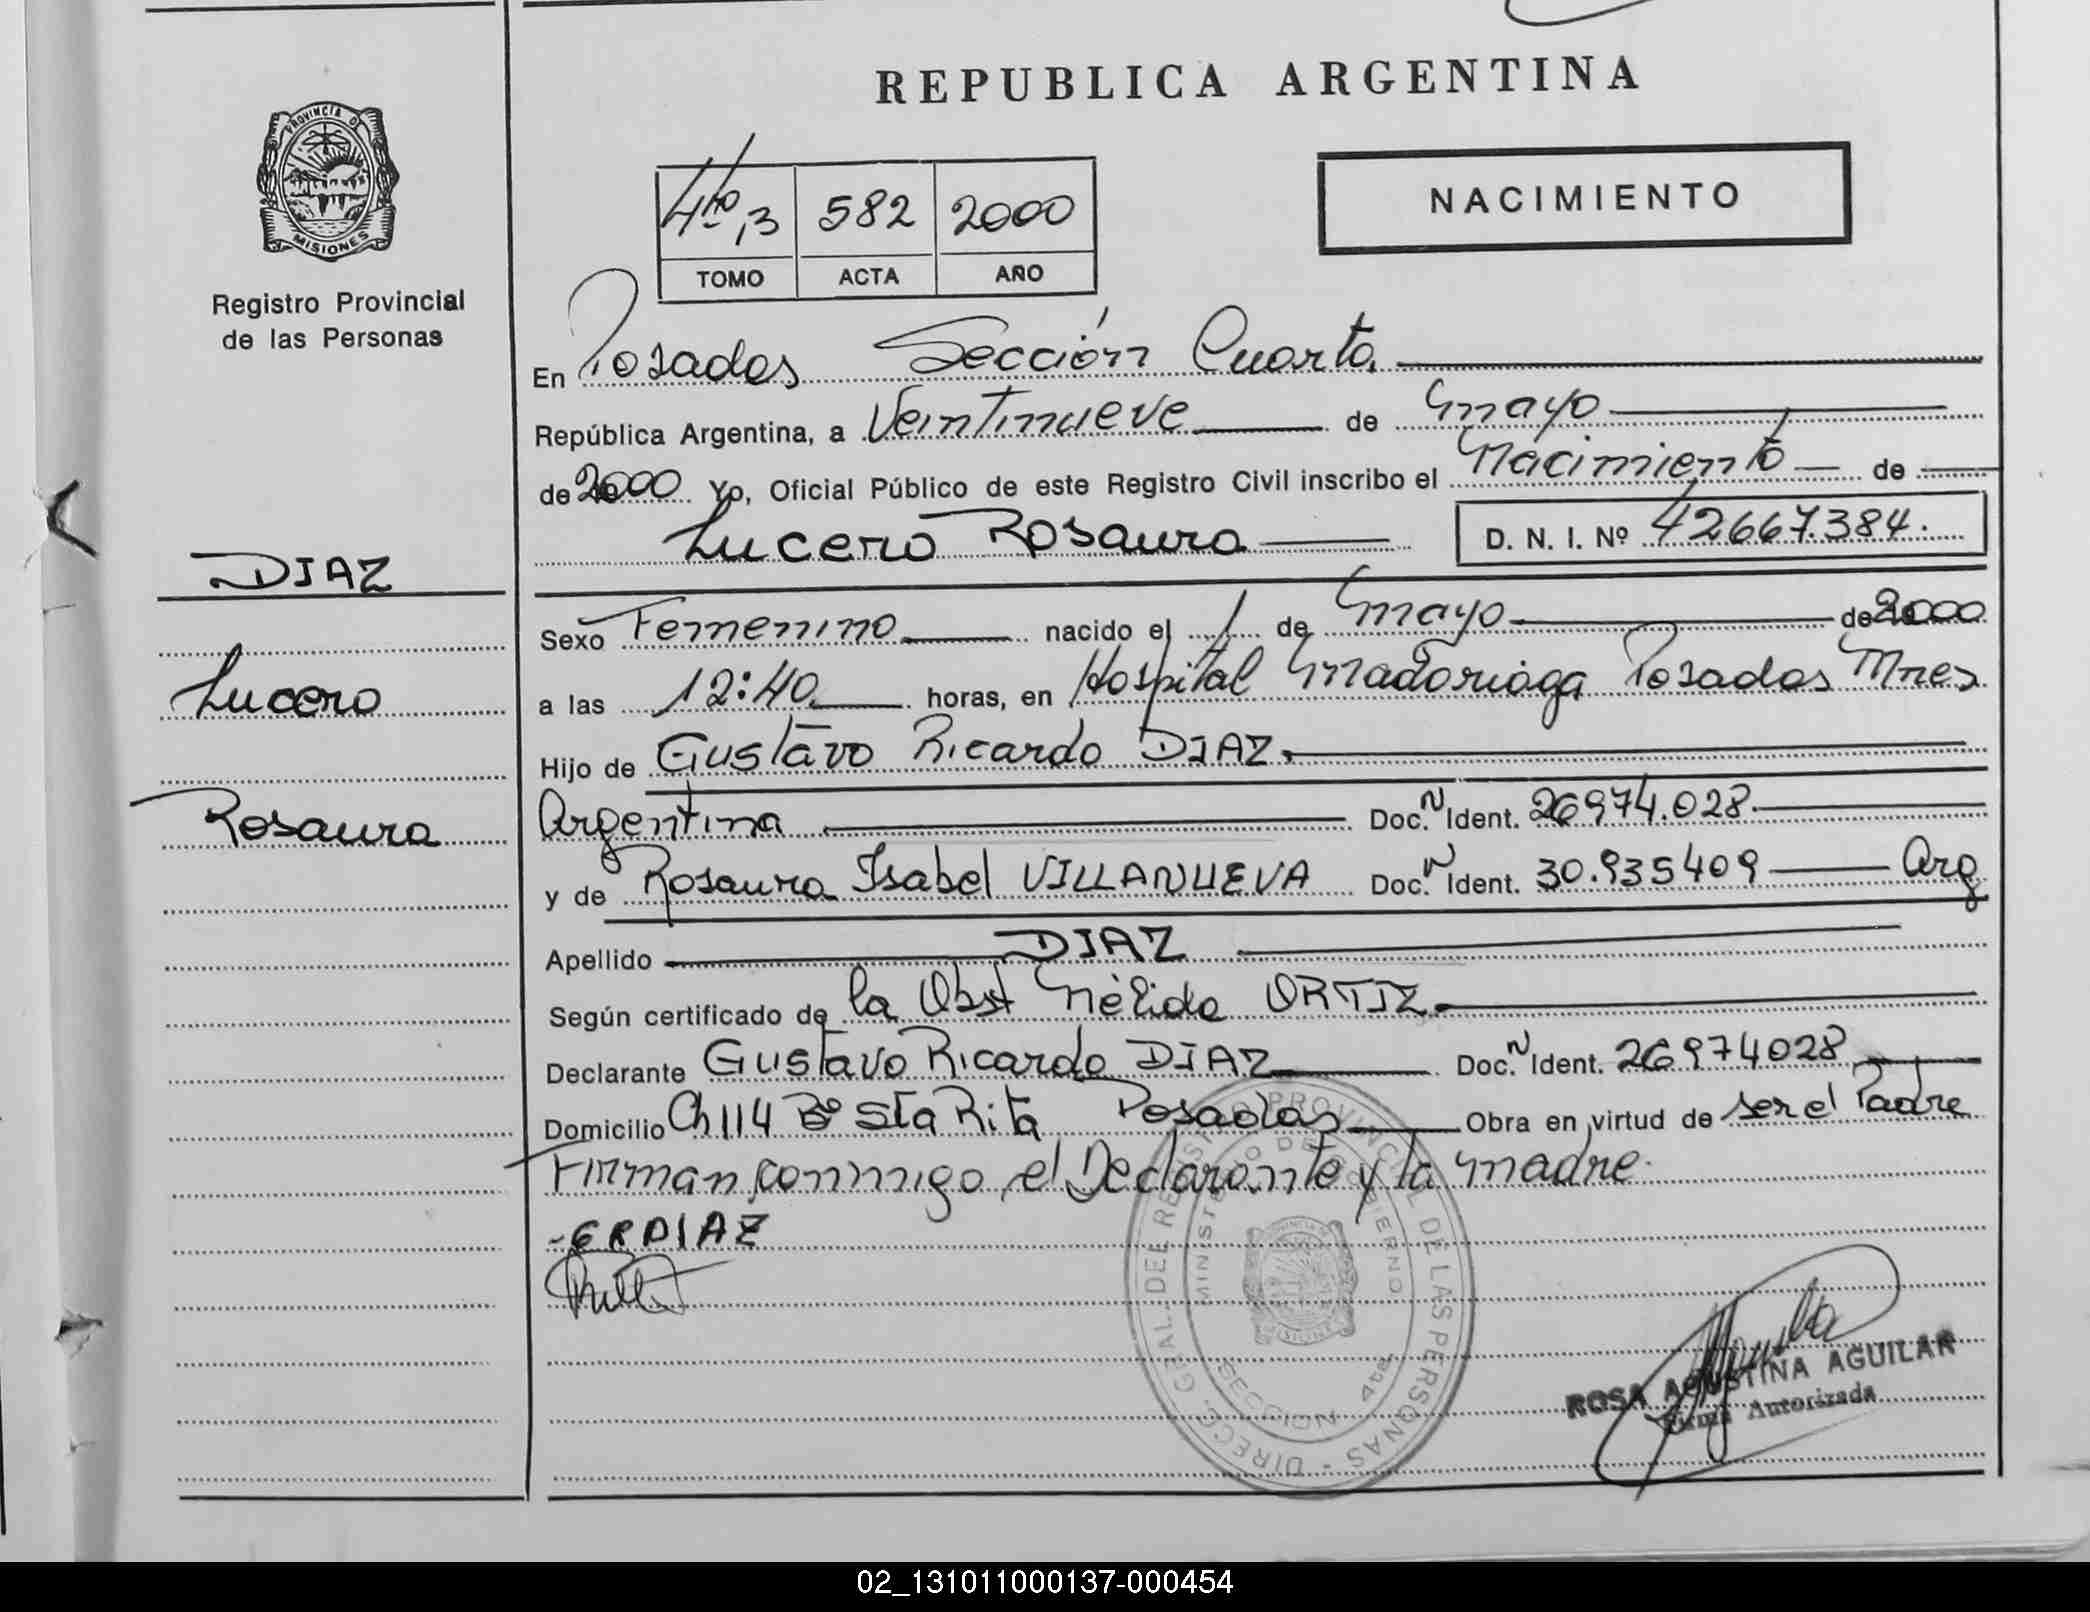 REPUBLICA ARGENTINA
PROVINCIA DE
MISIONES
Registro Provincial
de las Personas
4to,3 582 2000
TOMO ACTA AÑO
NACIMIENTO
En Posadas Sección Cuarta.
República Argentina, a Veintinueve de mayo
de 2000 Yo, Oficial Público de este Registro Civil inscribo el Nacimiento de
Lucero Rosaura
D. N. I. Nº 42667.384.
DIAZ
Lucero
Rosaura
Sexo Femenino nacido el 1 de mayo de 2000
a las 12:40 horas, en Hospital Madariaga Posadas Mnes
Hijo de Gustavo Ricardo DIAZ
Argentina Doc. N Ident. 26974.028
y de Rosaura Isabel VILLANUEVA Doc. N Ident. 30.935409 Arg
Apellido DIAZ
Según certificado de la Obst Nélida ORTIZ
Declarante Gustavo Ricardo DIAZ Doc. N Ident. 26974028
Domicilio Ch 114 Bº Sta Rita Posadas Obra en virtud de ser el Padre
Firman conmigo el Declarante y la madre.
-GRDIAZ
DIRECC. GRAL. DEL REGISTRO PROVINCIAL DE LAS PERSONAS
MINISTERIO DE GOBIERNO
SECCION 4ta
ROSA AGUSTINA AGUILAR
Firma Autorizada
02_131011000137-000454